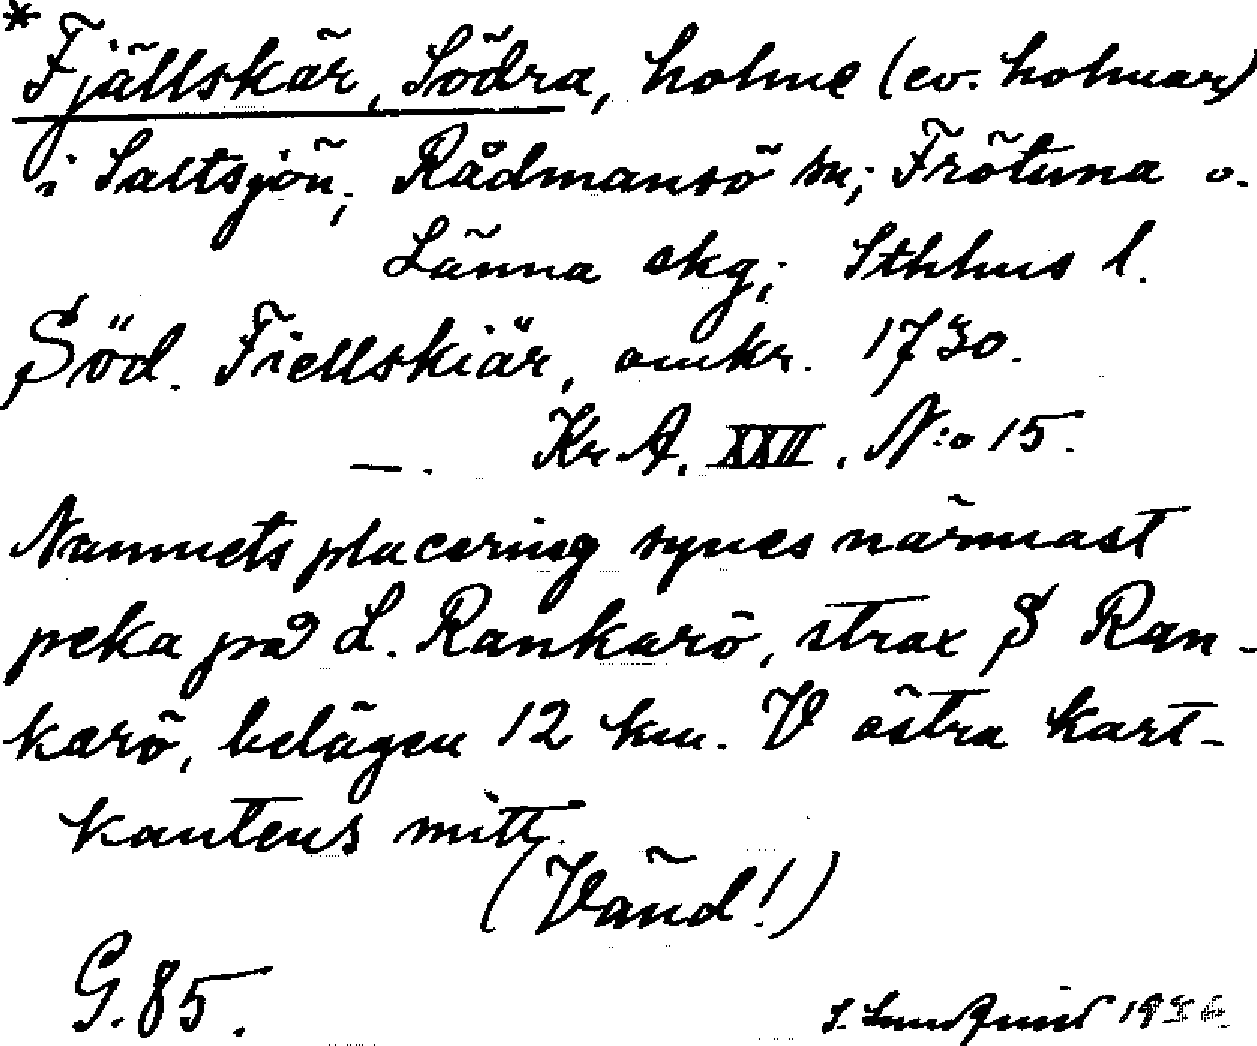 * Fjällskär, Södra, holme (ev. holmar)
i Saltsjön; Rådmansö sn; Frötuna o.
Länna skg; Sthlms l.
Söd. Fiellskiär, omkr. 1730.
—. Kr A. XXII. N:o 15.
Namnets placering synes närmast
peka på L. Rankarö, strax S Ran-
karö, belägen 12 km. V östra kart-
kantens mitt.
(Vänd!)
G. 85.